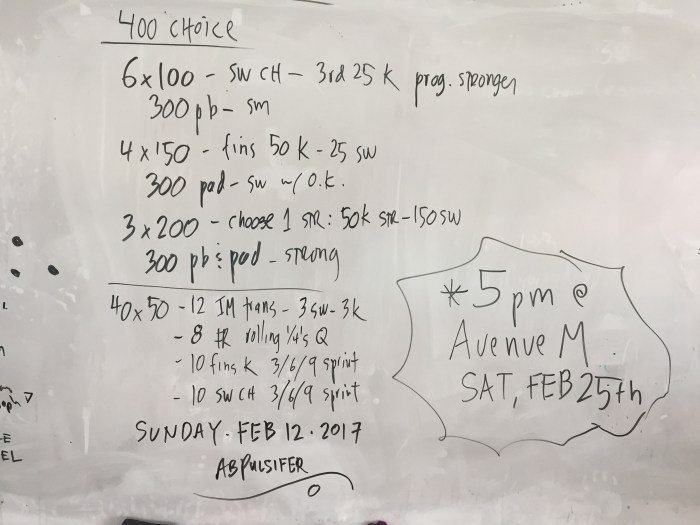 400 CHOICE
6x100 - SW CH - 3rd 25 K prog. stronger
300 pb - sm
4 x 150 - fins 50 K - 25 sw
300 pad - sw w/ O.K.
3 x 200 - choose 1 STR: 50K STR - 150 SW
300 pb & pad - STRONG
40x50 - 12 IM trans - 3 sw - 3k
- 8 FR rolling 1/4's Q
- 10 fins K 3/6/9 sprint
- 10 SW CH 3/6/9 sprint
SUNDAY. FEB 12. 2017
ABPULSIFER
*5pm @
Avenue M
SAT, FEB 25th
EL